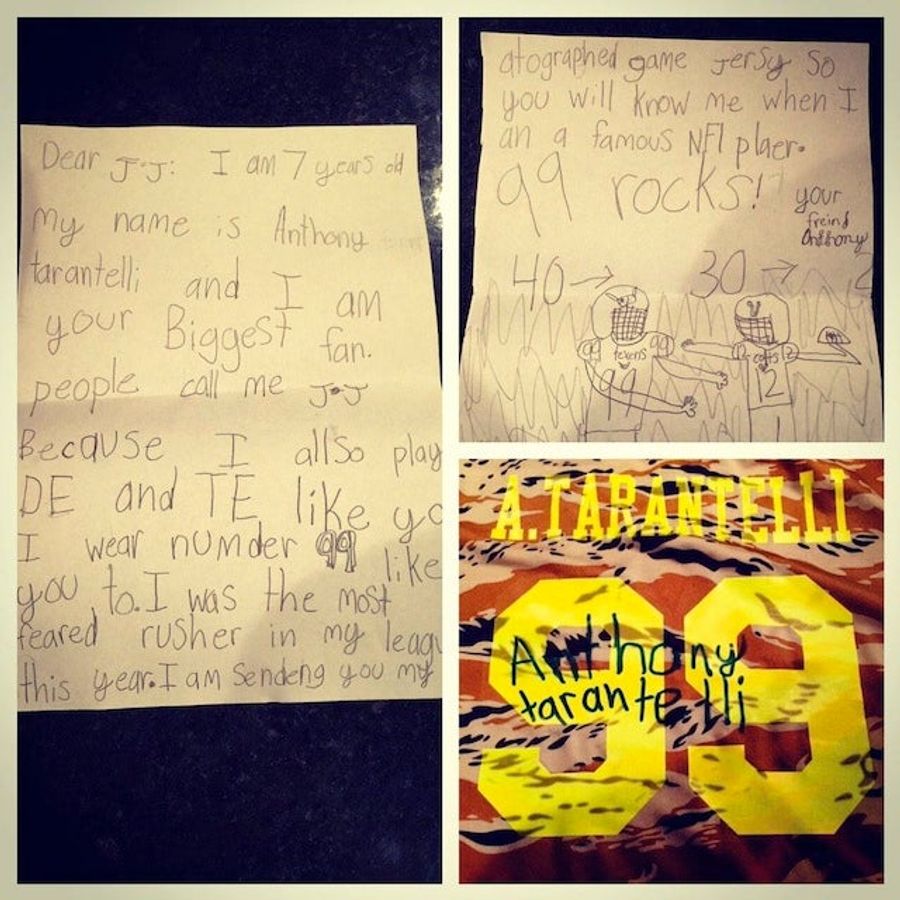 Dear J.J: I am 7 years old
My name is Anthony
tarantelli and I am
your Biggest fan.
people call me J.J
Because I allso play
DE and TE like yo
I wear numder 99 like
you to. I was the most
feared rusher in my leagu
this year. I am Sendeng you my
atographed game Jersy So
you will know me when I
am a famous NFl plaer.
99 rocks! your
freind
Anthony
40→ 30→ 2
99 texens 99 12 colts 12
99 12
A.TARANTELLI
99
Anthony
tarantelli